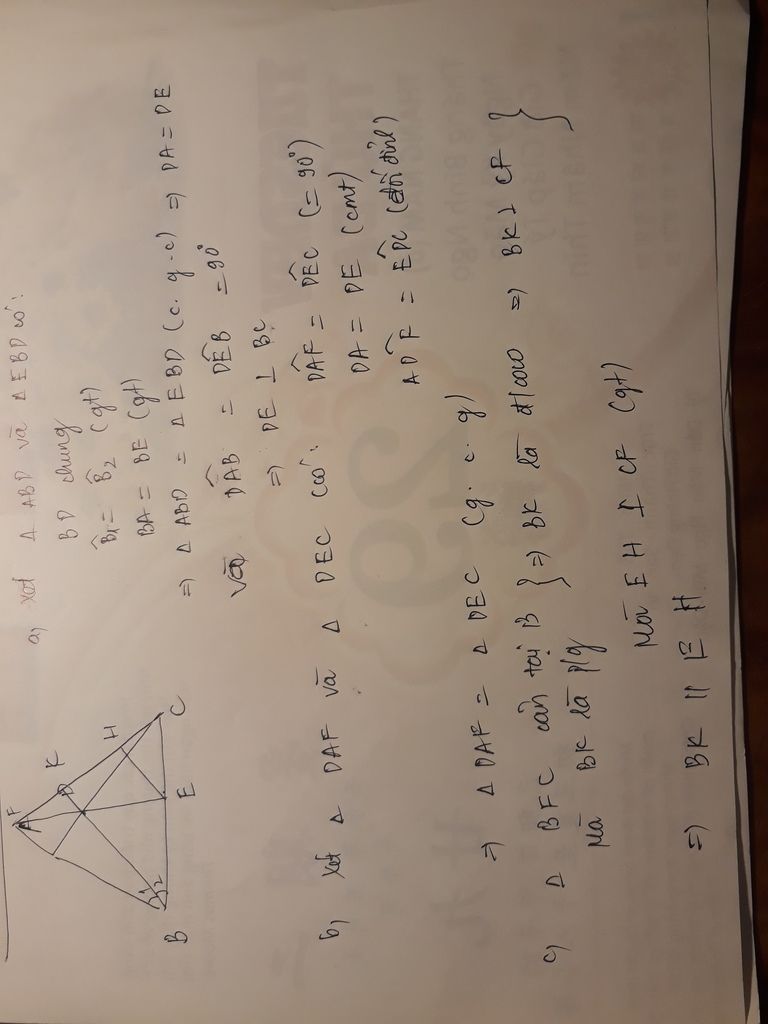 a, Xét Δ ABD và Δ EBD có:
BD chung
B̂1 = B̂2 (gt)
BA = BE (gt)
=> Δ ABD = Δ EBD (c.g.c) => DA = DE
và DÂB = DÊB = 90°
=> DE ⊥ BC
b, Xét Δ DAF và Δ DEC có: DÂF = DÊC (= 90°)
DA = DE (cmt)
AD̂F = ED̂C (đối đỉnh)
=> Δ DAF = Δ DEC (g.c.g)
c, Δ BFC cân tại B
Mà BK là p/g
} => BK là đ/cao => BK ⊥ CF }
Mà EH ⊥ CF (gt)
=> BK // EH
F
A
K
D
H
B
1
2
E
C